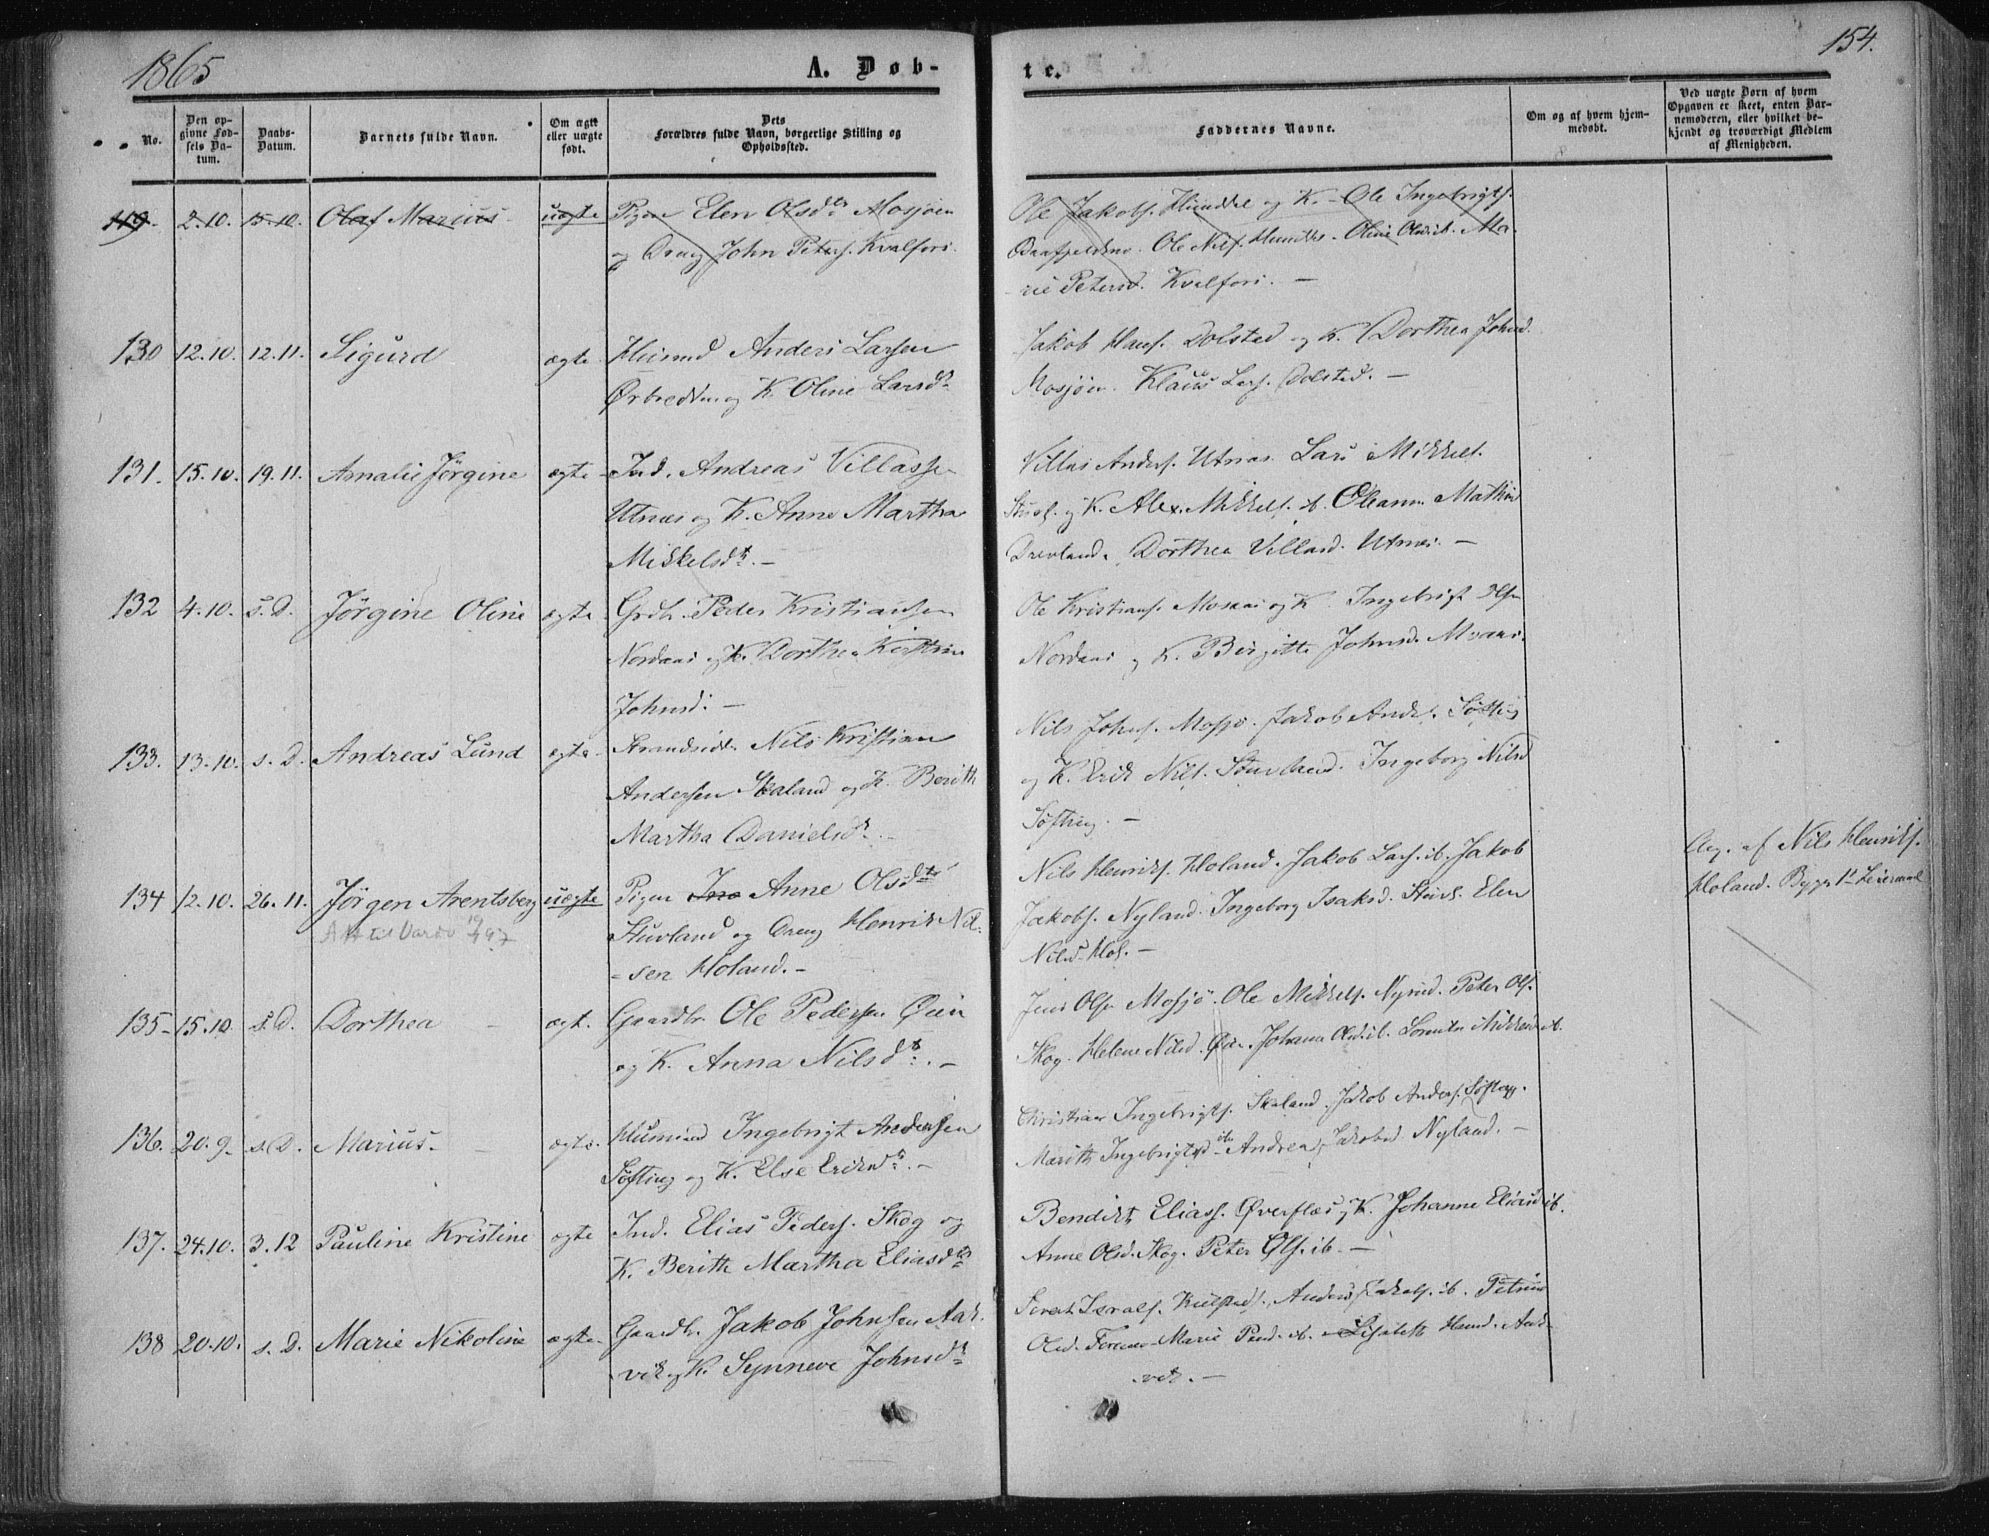 1865
A. Døb-
te.
154.
No.
Den op-
givne Fød-
sels Da-
tum.
Daabs-
Datum.
Barnets fulde Navn.
Om ægte
eller uægte
født.
Dets
Forældres fulde Navn, borgerlige Stilling og
Opholdssted.
Faddernes Navne.
Om og af hvem hjem-
medøbt.
Ved uægte Børn af hvem
Opgaven er skeet, enten Bar-
nemoderen, eller hvilket be-
kjendt og troværdigt Medlem
af Menigheden.
119. 2.10. 15.10. Olaf Marius uægte Pigen Elen Olsdtr Mosjøen
og Dreng John Peters. Kvalfors.
Ole Jakobs. og K. Ole Ingebrigts.
Ole Nils. Oline Olsd. ib. Ma-
rie Petersd. Kvalfors. —
130 12.10. 12.11. Sigurd ægte Huusmd Anders Larsen
og K. Oline Larsdr
Jakob Hans. Dolsted og K. Dorthea Johnsd.
Mosjøen. Klaus Lars. Dolsted. —
131. 15.10. 19.11. Amalie Jørgine ægte Ind. Andreas Villassen
Utnæs og K. Anne Martha
Mikkelsdtr. —
Villas Anders. Utnæs. Lars Mikkels.
og K. Alex. Mikkels. ib. Oleanna Mathis
Drevland. Dorthea Villasd. Utnæs. —
132 4.10. s.D. Jørgine Oline ægte Grdbr. Peder Kristiansen
og K. Dorthea
Johnsd. —
Ole Kristians. og K. Ingebrigt Olsen
og K. Birgitte Johnsd.
133. 13.10. s.D. Andreas Lund ægte Strandsidd. Nils Kristian
Andersen Skaland og K. Berith
Martha Danielsdr. —
Nils Johns. Mosjø. Jakob Anders. Søfting
og K. Erik Nils. Stuvland. Ingeborg Nilsd
Søfting. —
134 12.10. 26.11. Jørgen Arentsberg uægte Pigen Anne Olsdtr
Stuvland og Dreng Henrik Nil-
sen Holand. —
Nils Henriks. Holand. Jakob Lars. ib. Jakob
Jakobs. Nyland. Ingeborg Isaksd. Elen
Nilsd. Hol. —
Ang. af Nils Henriks.
Holand. Begges 1ste Leiermaal
135 15.10. s.D. Dorthea ægt. Gaardbr. Ole Pedersen Øien
og K. Anna Nilsdtr. —
Jens Olsen Mosjø. Ole Mikkels. Nyrud. Peter Ols.
Skog. Helene Nilsd. Johanna Olsd. ib.
136. 20.9. s.D. Marius. ægte. Husmnd Ingebrigt Andersen
Søfting og K. Else Eriksdr. —
Christian Ingebrigts. Skaland. Jakob Anders. Søfting.
Marith Ingebrigtsd ib. Andrea Jakobsd Nyland. —
137. 24.10. 3.12 Pauline Kristine ægte Ind. Elias Peders. Skog og
K. Berith Martha Eliasdtr
Bendikt Eliass. Øverflæs og K. Johanne Eliasd ib.
Anne Olsd. Skog. Peter Ols. ib. —
138 20.10. s.D. Marie Nikoline ægte Gaardbr. Jakob Johnsen Aak-
vik og K. Synneve Johnsdtr
Sivert Israels. Kulstad. Anders Jakobs. ib. Petrine
Olsd. Marie Pedd. ib. Lisabeth Aak-
vik. —